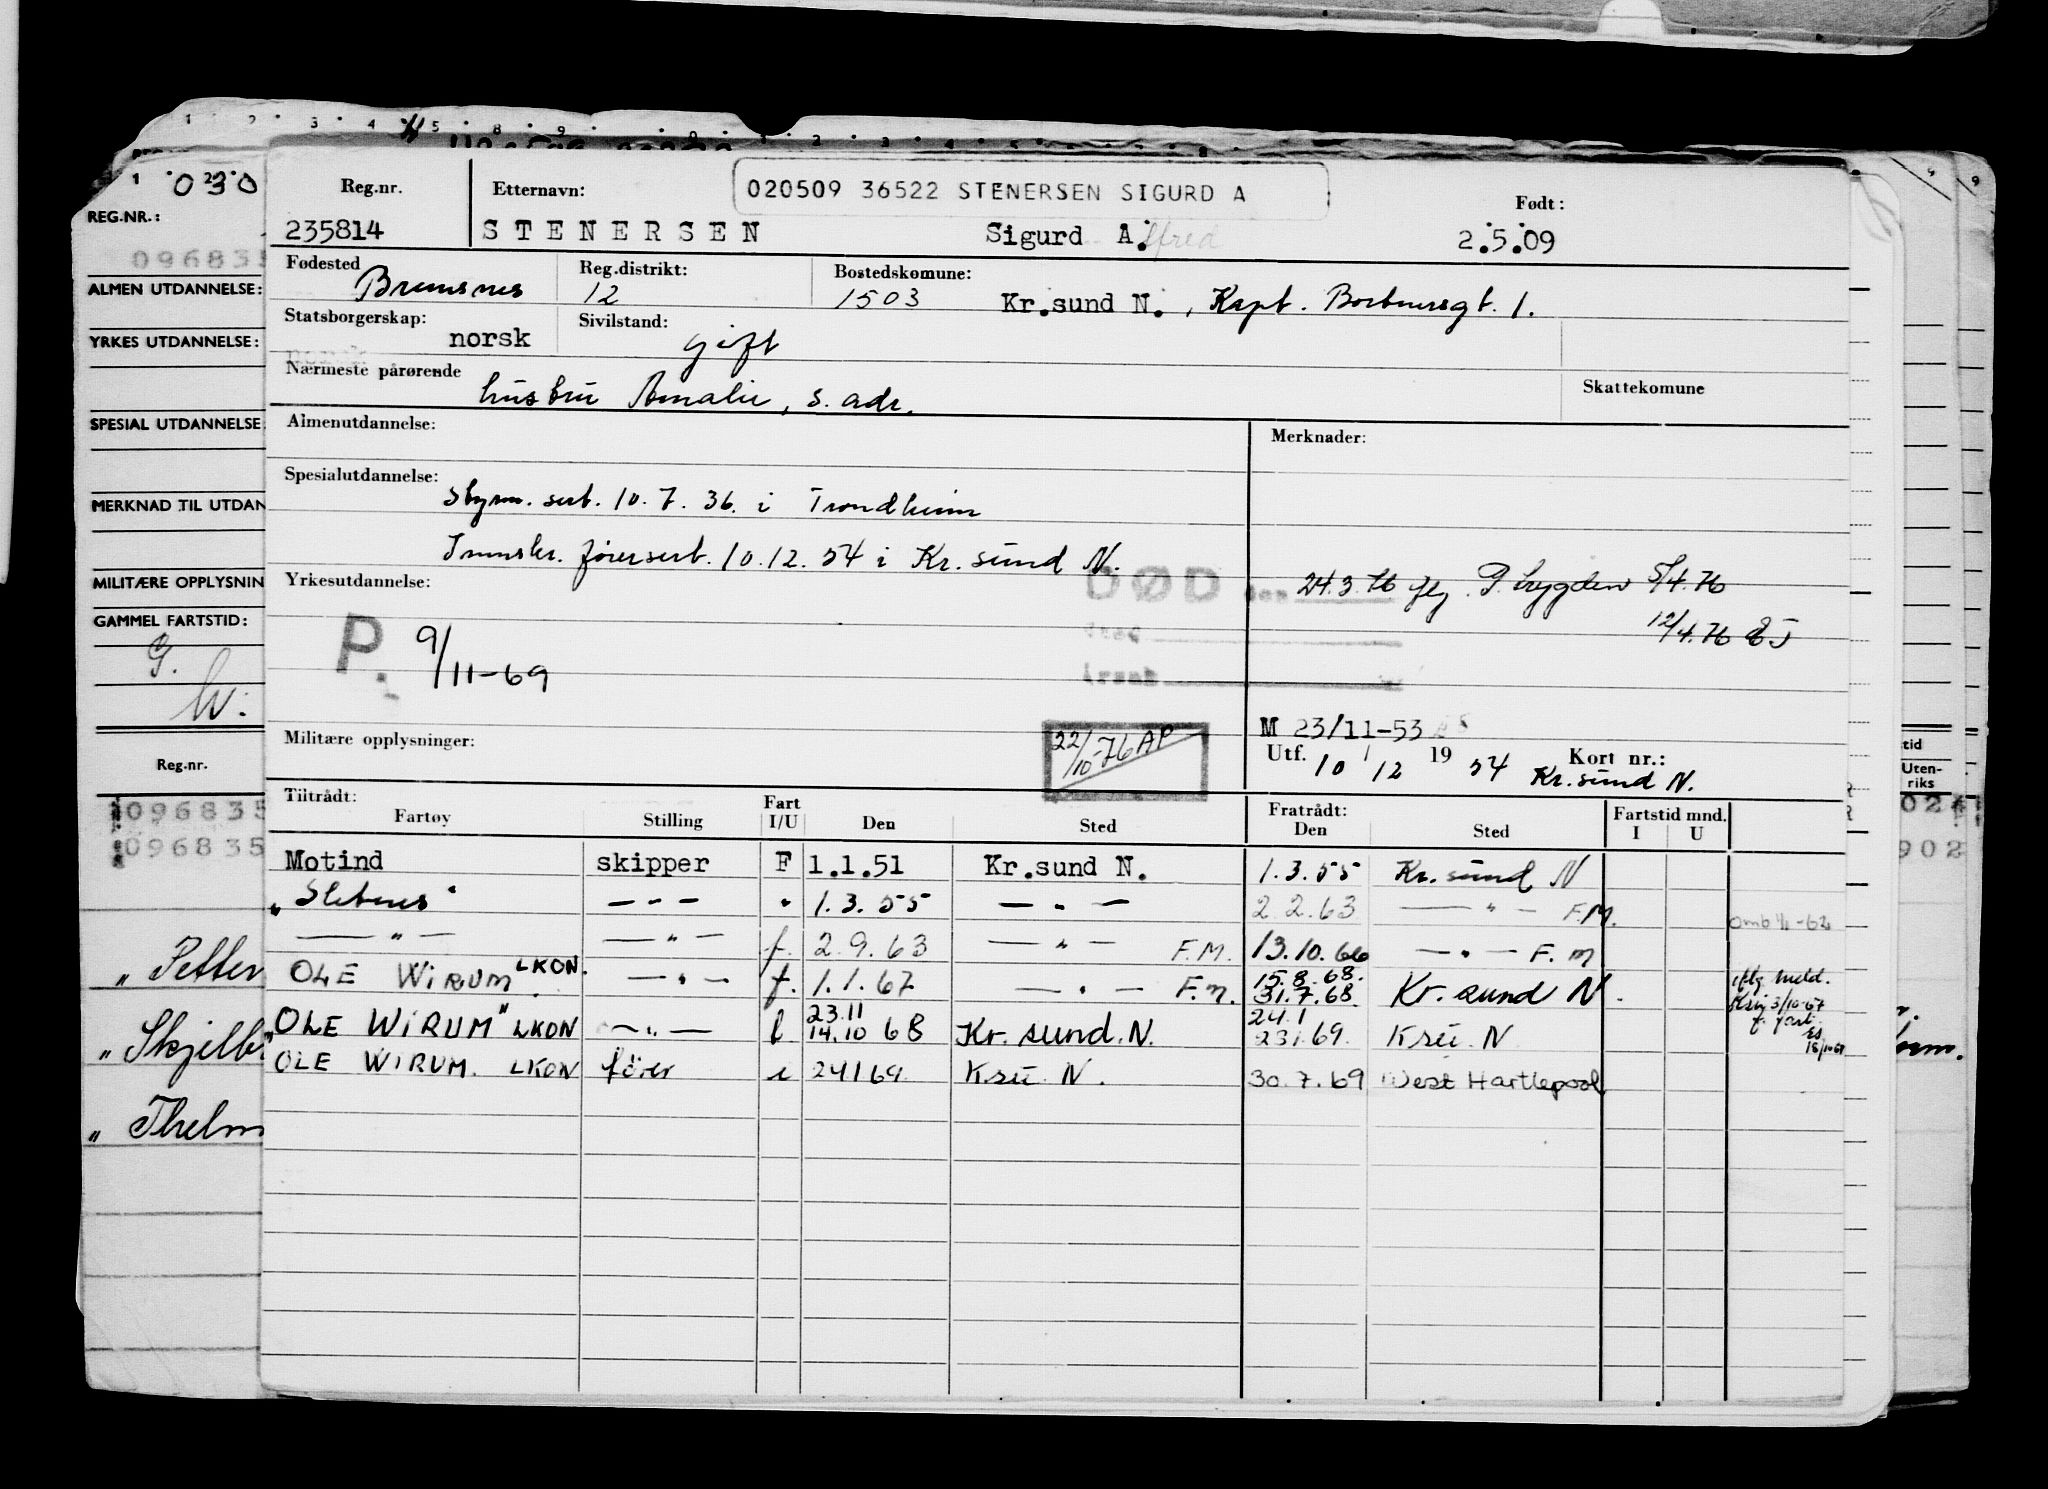 1 2 3 4 5 8 9
1 030
REG.NR.:
096835
ALMEN UTDANNELSE:
YRKES UTDANNELSE:
SPESIAL UTDANNELSE
MERKNAD TIL UTDAN
MILITÆRE OPPLYSNIN
GAMMEL FARTSTID:
G.
W.
Reg.nr.
096835
096835
„ Petter
„ Skjelb
„ Thelm
Reg.nr. Etternavn: 020509 36522 STENERSEN SIGURD A Født:
235814 STENERSEN Sigurd A.lfred 2.5.09
Fødested Bremsnes Reg.distrikt: 12 Bostedskomune: 1503 Kr.sund N., Kapt. Bodtnersgt. 1.
Statsborgerskap: norsk Sivilstand: gift
Nærmeste pårørende hustru Amalie, s. adr. Skattekomune
Almenutdannelse: Merknader:
Spesialutdannelse: Styrm. sert. 10.7.36. i Trondheim
Innskr. førersert. 10.12.54 i Kr.sund N.
Yrkesutdannelse: DØD den 24.3.76 flg. P. Lygden 5/4.76
12/4.76
P. 9/11-69 Årsak
M 23/11-53
Militære opplysninger: 22/10-76 AP Utf. 10 / 12 19 54 Kort nr.:
Kr.sund N.
Tiltrådt: Fratrådt: Fartstid mnd.
Fartøy Stilling Fart I/U Den Sted Den Sted I U
Motind skipper F 1.1.51 Kr.sund N. 1.3.55 Kr.sund N
„Stetnes" — " — " 1.3.55 — " — 2.2.63 — " — F.M. omb 1/1-62
— " — — " — f. 2.9.63 — " — F.M. 13.10.66 — " — F.M
OLE WIRUM LKON. — " — f. 1.1.67 — " — F.M. 15.8.68. 31.7.68. Kr.sund N. iflg meld.
"OLE WIRUM" LKON — " — 23.11 14.10 68 Kr.sund.N. 24.1 23.1.69. Krsu. N 3/10-67
18/10-67
OLE WIRUM. LKON fører u 24.1 69 Krsu. N. 30.7.69 West Hartlepool
tid
Uten-
riks
02
902